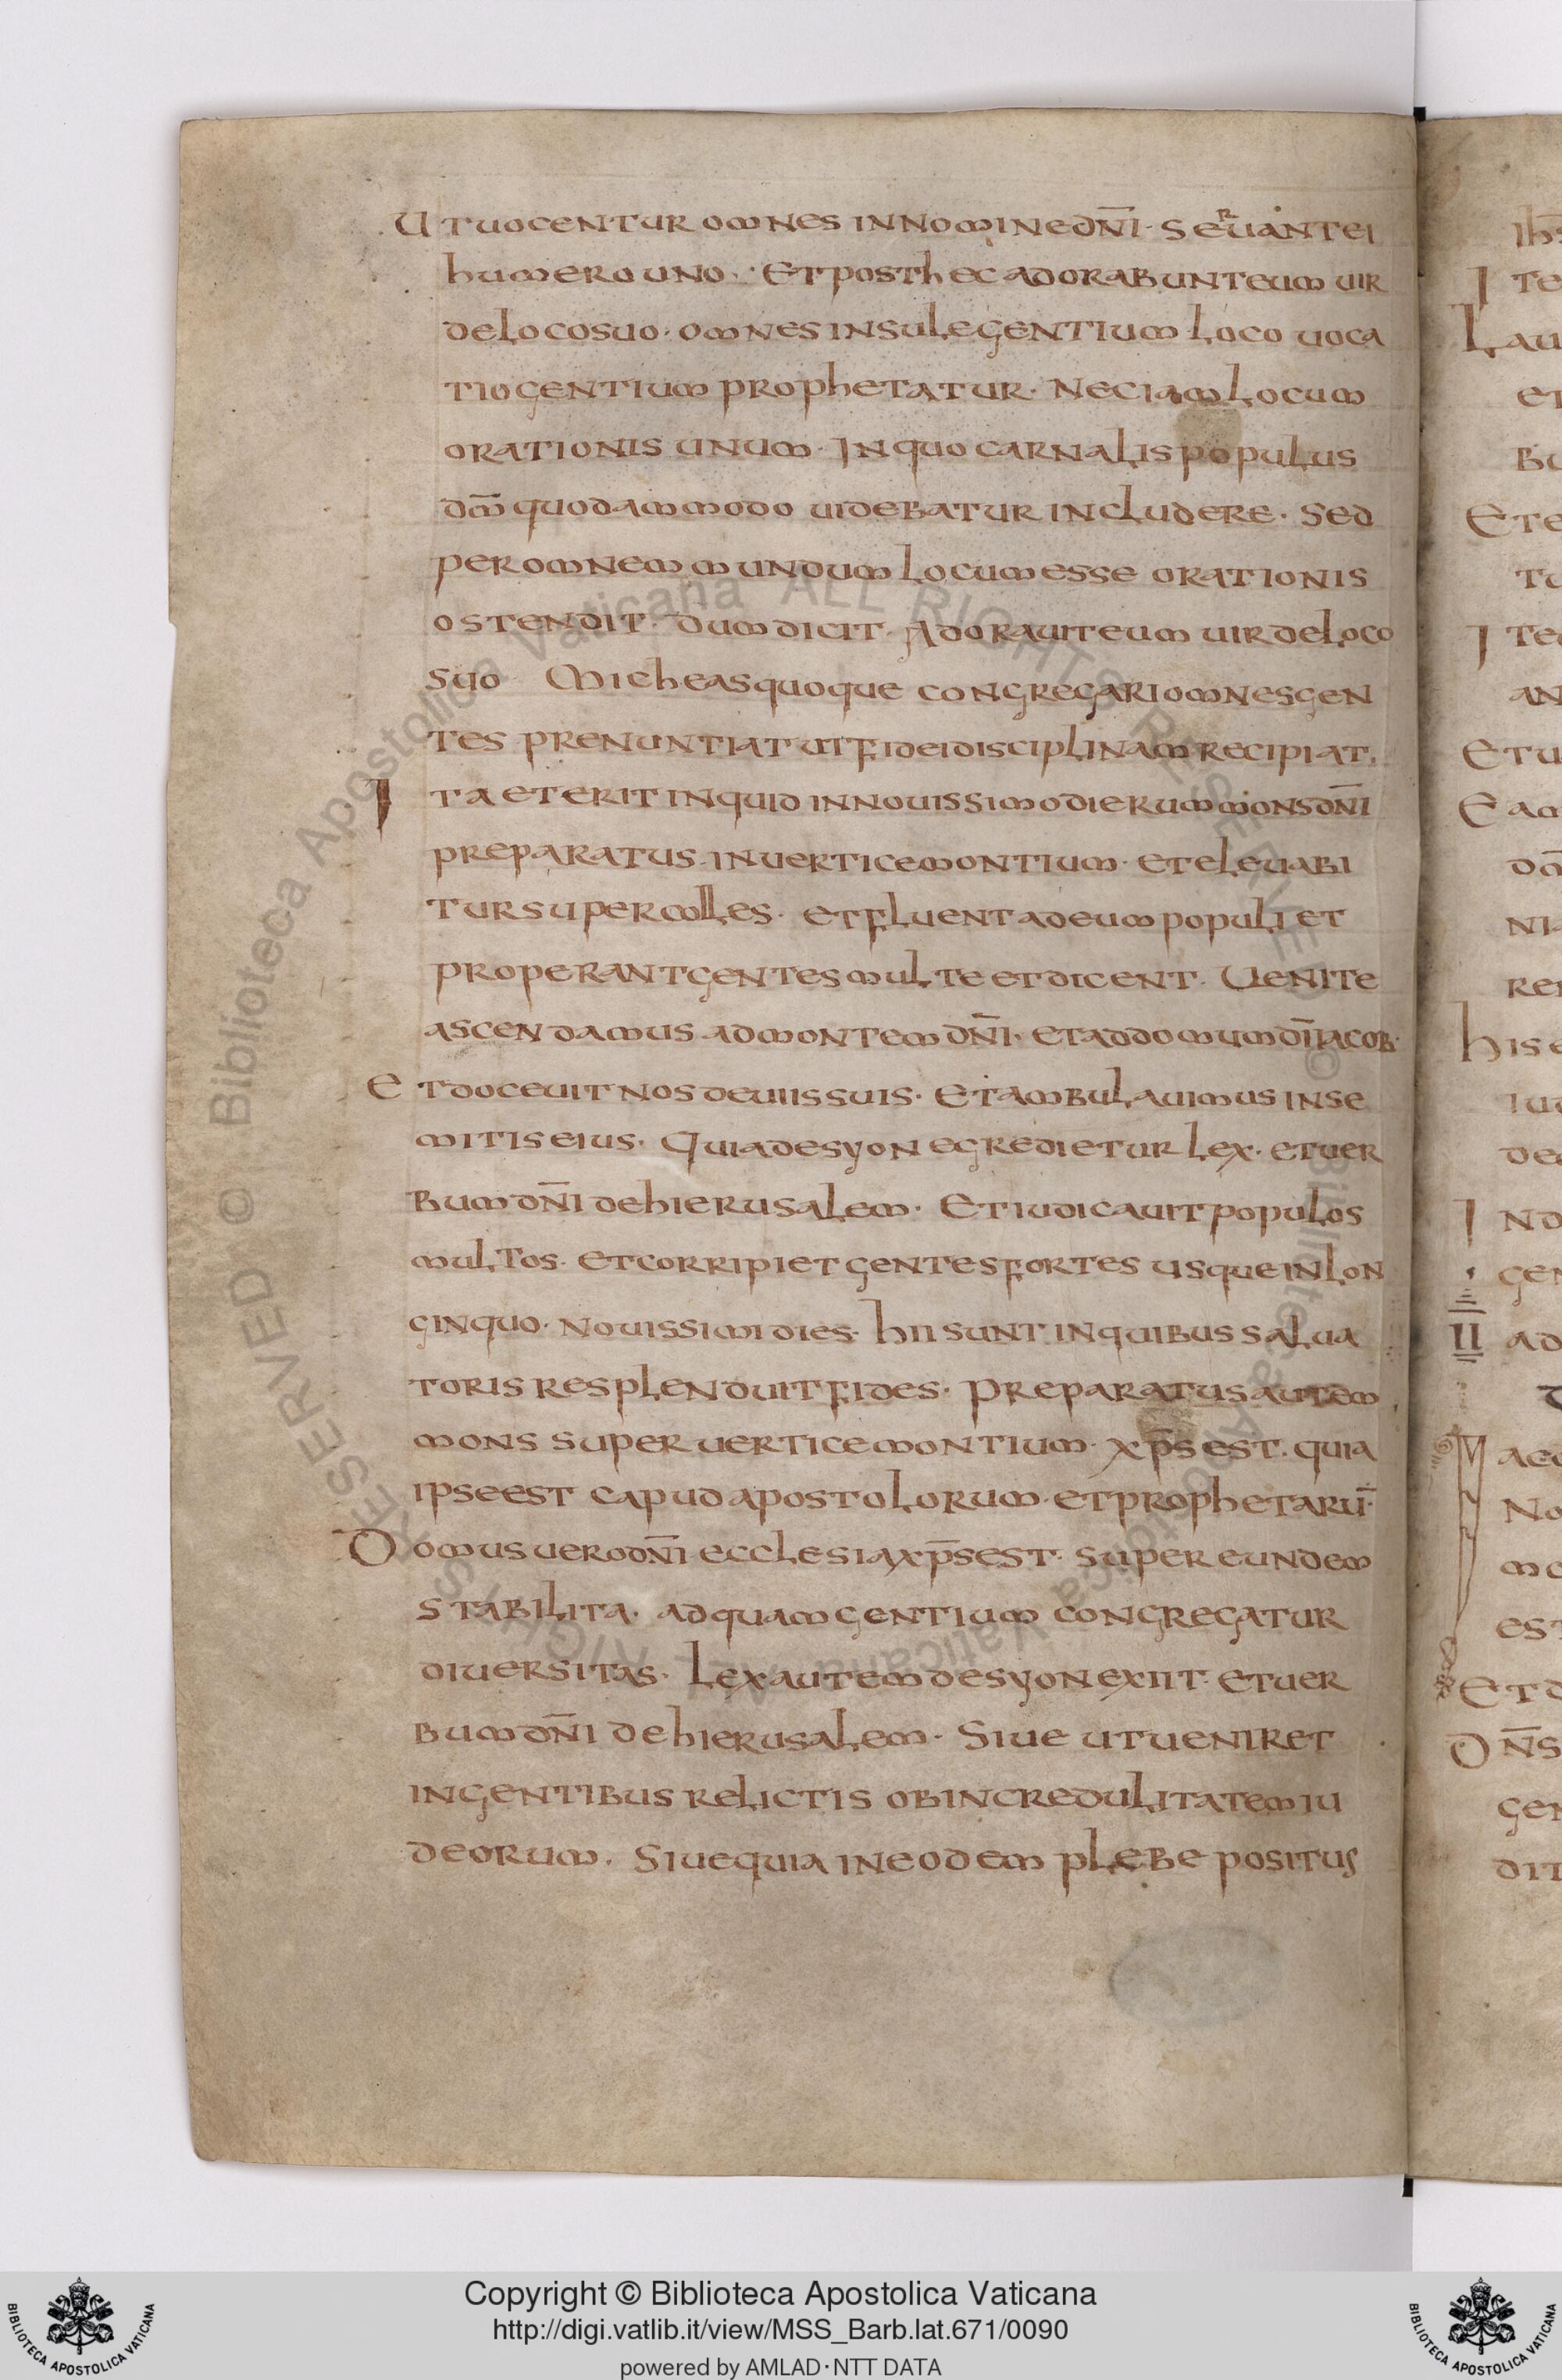 Ut uocentur omnes in nomine dn̄i· Seruant ei
humero uno· Et post hec adorabunt eum uir
de loco suo· omnes insule gentium loco uoca
tio gentium prophetatur· Nec iam locum
orationis unum· In quo carnalis populus
dm̄ quodammodo uidebatur includere· Sed
per omnem mundum locum esse orationis
ostendit· Dum dicit· Adorauit eum uir de loco
suo Micheas quoque congregari omnes gen
tes prenuntiat ut fidei disciplinam recipiat,
Ita et erit inquid in nouissimo dierum mons dn̄i
preparatus in uertice montium· et eleuabi
tur super colles· et fluent ad eum populi et
properant gentes multe et dicent· Uenite
ascendamus ad montem dn̄i· et ad domum dī iacob·
Et doceuit nos de uiis suis· Et ambulauimus in se
mitis eius· Quia de syon egredietur lex· et uer
bum dn̄i de hierusalem· Et iudicauit populos
multos· et corripiet gentes fortes usque in lon
ginquo· nouissimi dies· hii sunt in quibus salua
toris resplenduit fides· Preparatus autem
mons super uertice montium· xp̄s est· quia
ipse est capud apostolorum· et prophetarū·
Domus uero dn̄i ecclesia xp̄s est· super eundem
stabilita· ad quam gentium congregatur
diuersitas· Lex autem de syon exiit· et uer
bum dn̄i de hierusalem· Siue ut ueniret
in gentibus relictis ob incredulitatem iu
deorum· Siue quia in eodem plebe positus
Copyright © Biblioteca Apostolica Vaticana
http://digi.vatlib.it/view/MSS_Barb.lat.671/0090
powered by AMLAD·NTT DATA